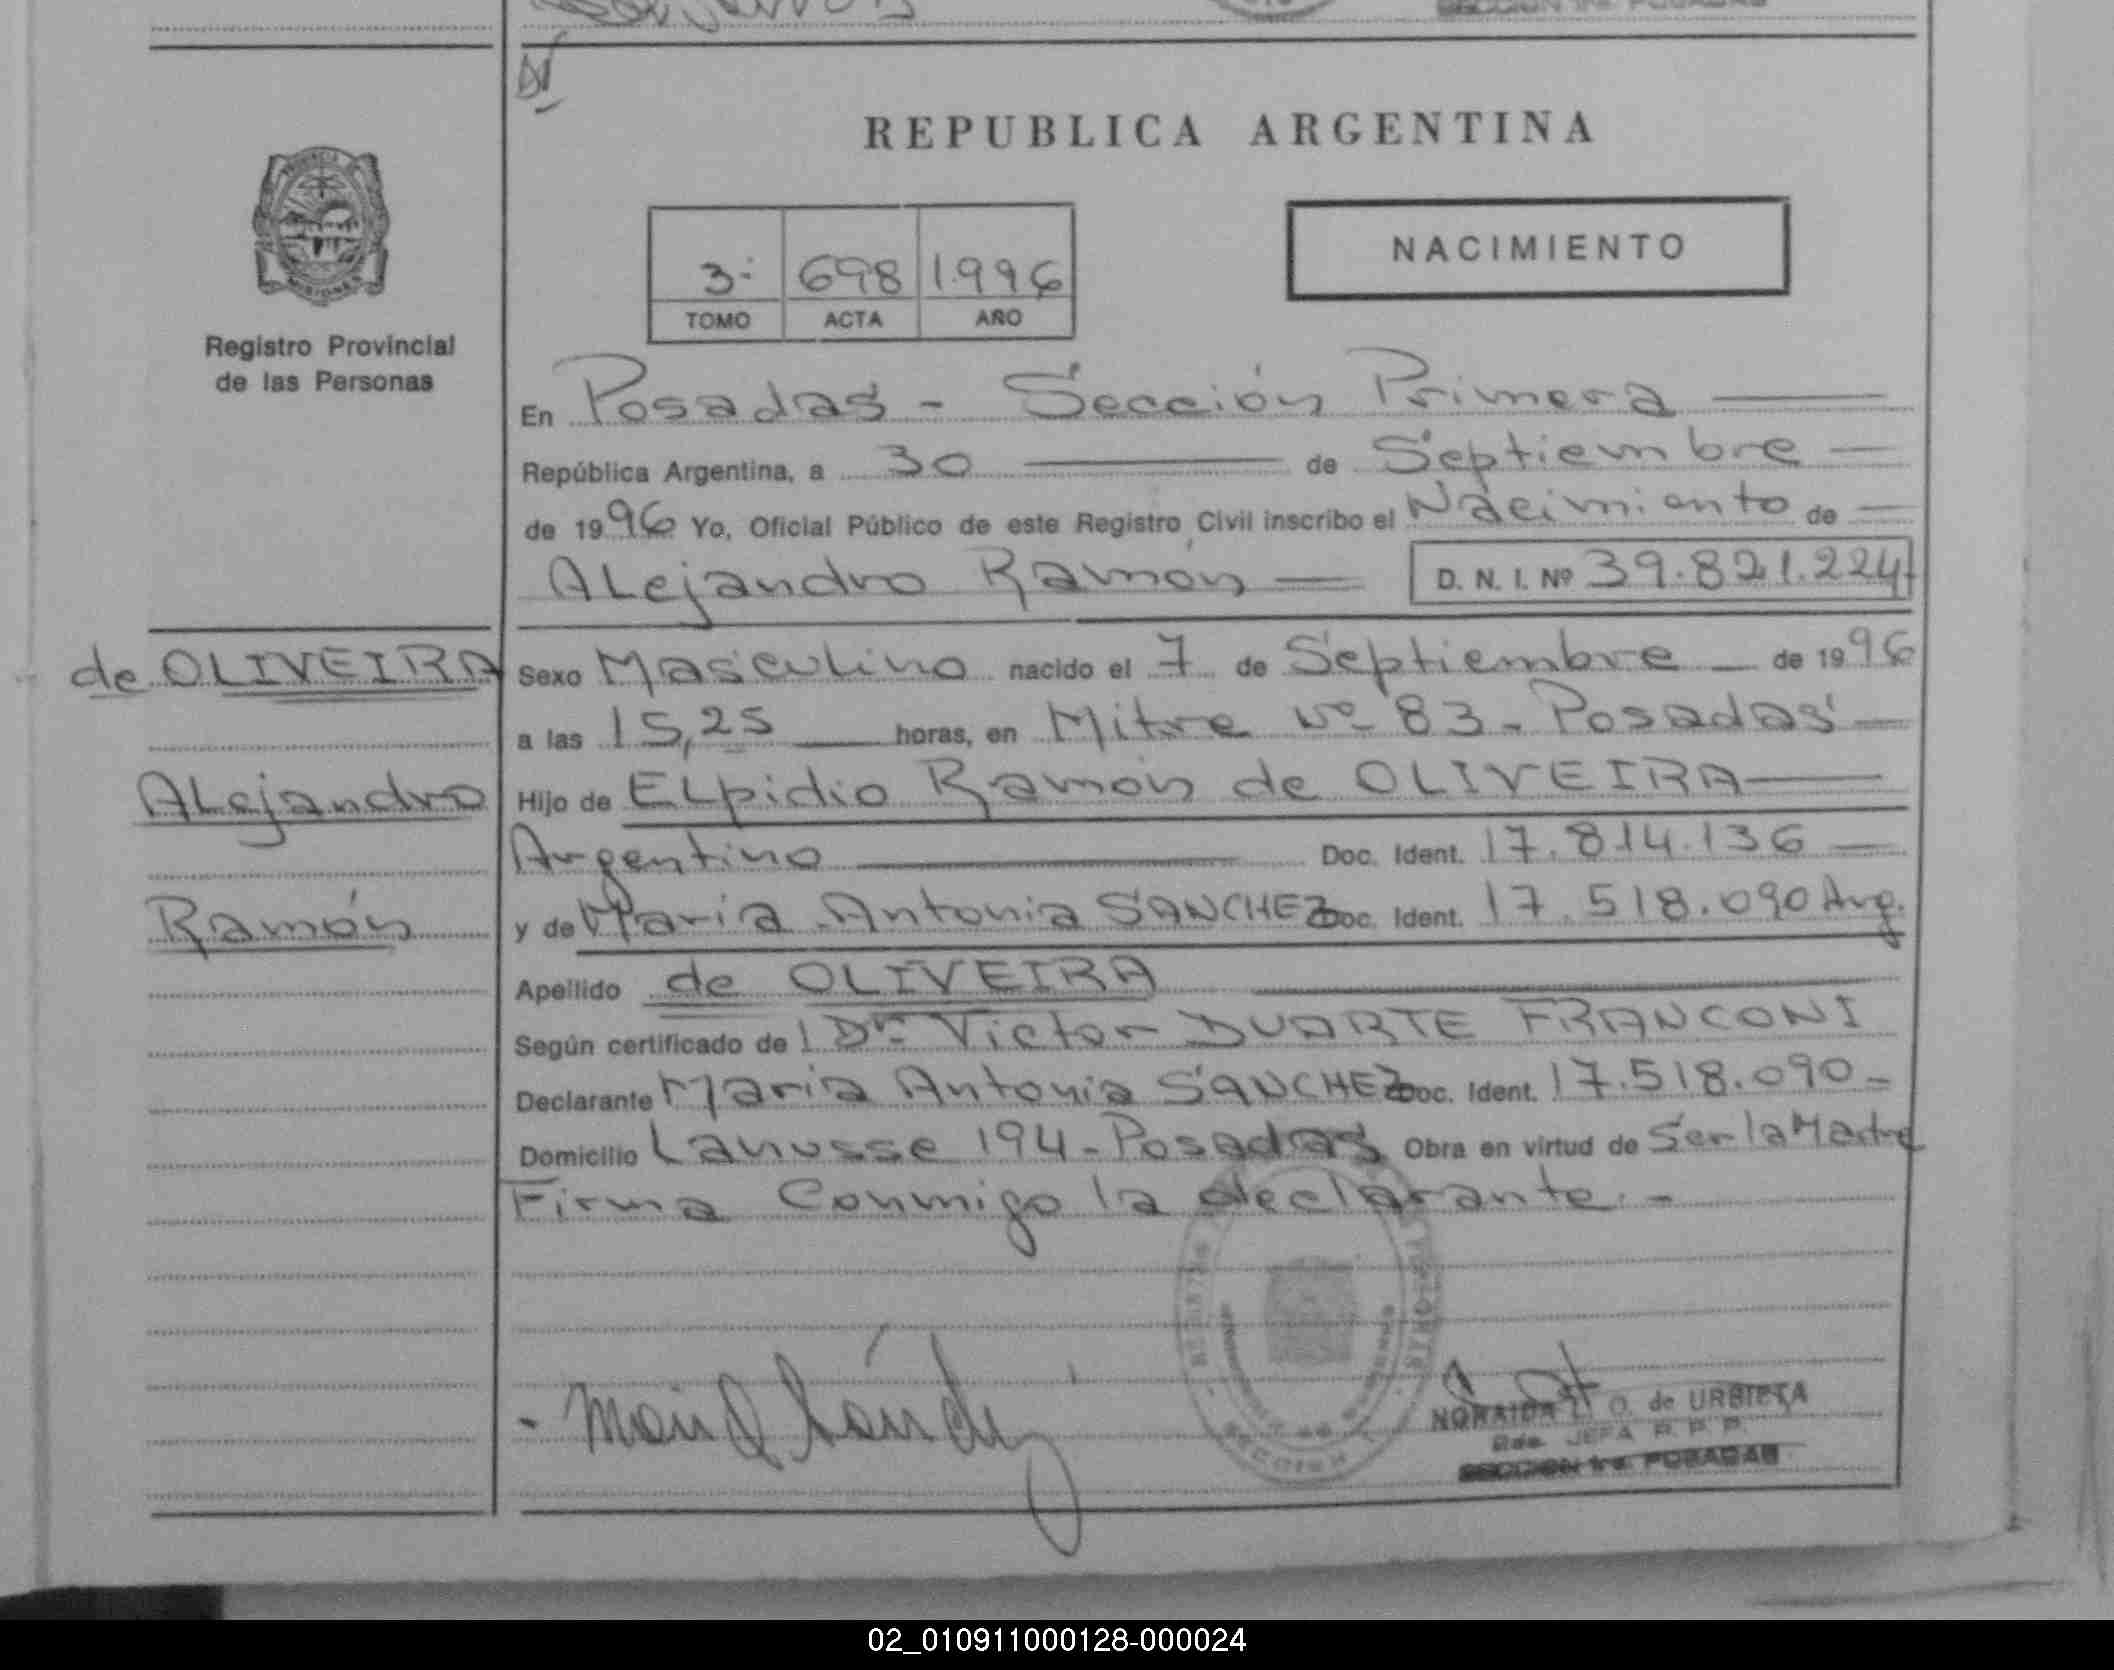 REPUBLICA ARGENTINA
3º 698 1.996
TOMO ACTA AÑO
NACIMIENTO
Registro Provincial
de las Personas
En Posadas - Sección Primera
República Argentina, a 30 de Septiembre
de 1996 Yo, Oficial Público de este Registro Civil inscribo el Nacimiento de
Alejandro Ramón D. N. I. Nº 39.821.224
de OLIVEIRA
Alejandro
Ramón
Sexo Masculino nacido el 7 de Septiembre de 1996
a las 15,25 horas, en Mitre Nº 83 - Posadas
Hijo de ELpidio Ramón de OLIVEIRA
Argentino Doc. Ident. 17.814.136
y de Maria Antonia SANCHEZ Doc. Ident. 17.518.090 Arg.
Apellido de OLIVEIRA
Según certificado de l Dr. Victor DUARTE FRANCONI
Declarante Maria Antonia SANCHEZ Doc. Ident. 17.518.090-
Domicilio Lanusse 194 - Posadas Obra en virtud de Ser la Madre
Firma Conmigo la declarante.-
NORAIDA O. de URBIETA
JEFA R. P. P.
SECCION 1ra. POSADAS
02_010911000128-000024